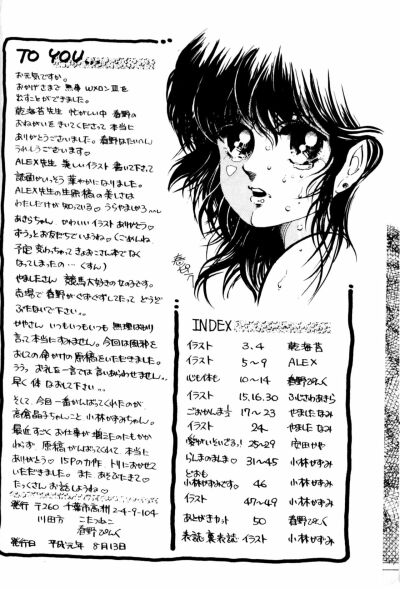 TO YOU...
お元気ですか。
おかげさまで 無事 WメロンⅢを
出すことができました。
乾海苔先生 忙がしい中 春野の
おねがいをきいてくださって 本当に
ありがとうございました。春野はたいへん
うれしゅうございます♡
ALEX先生 美しいイラスト 書いて下さって
誌面がいっそう 華やかになりました。
ALEX先生の生原稿の美しさは
わたしだけが知っている♡ うらやましかろ〜〜
あきらちゃん かわいい イラスト ありがとう♡
ずうっとお友だちでいようね♡ ごめんね
予定 変わっちゃって きょおこさん本でなく
なってしまったの…(くすん)
やましたさん 競馬大好きの なみです。
売場で 春野がぐずぐずしてたって どうど
ぶたないで下さい…
かやさん いつもいつもいつも 無理ばかり
言って 本当にすみません。今回は風邪を
おしての 命がけの原稿をいただきました。
ううっ お礼を一言では言いあらわせません…
早く 体なおして下さい…
そして、今回一番がんばってくれたのが
高倉晶子ちゃんこと 小林かずみちゃん。
最近 すごく お仕事が 増えたのにもかか
わらず 原稿がんばってくれて、本当に
ありがとう♡ 15Pの力作 トリにおかせて
いただきました。また あそぶたまで♡
たっくさん お話しようね♡
発行 〒260 千葉市高洲2-4-9-104
川田方 こたつねこ
春野ぴんく
発行日 平成元年 8月13日
INDEX
イラスト 3.4 乾海苔
イラスト 5〜9 ALEX
心も体も 10〜14 春野ぴんく
イラスト 15.16.30 ふじさわあきら
ごおかんま½ 17〜23 やましたなみ
イラスト 24〜 やましたなみ
愛がいたいぎる! 25〜29 安田かや
らしまのままに♡ 31〜45 小林かずみ
どおも
小林かずみです。 46 小林かずみ
イラスト 47〜49 小林かずみ
あとがきカット 50 春野ぴんく
表誌・裏表誌 イラスト 小林かずみ